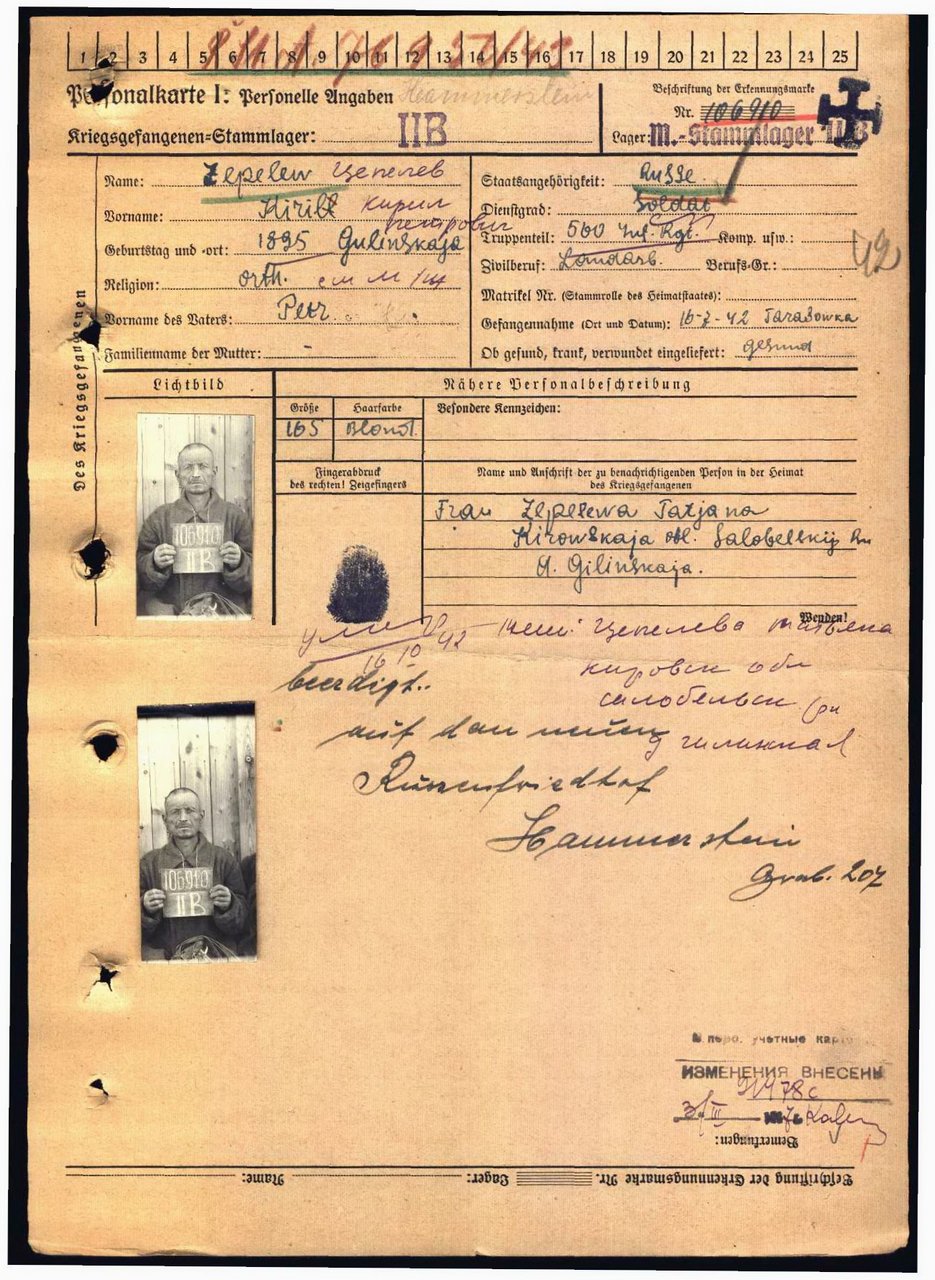 1 2 3 4 5 6 7 8 9 10 11 12 13 14 15 16 17 18 19 20 21 22 23 24 25
Personalkarte I: Personelle Angaben Hammerstein
Kriegsgefangenen-Stammlager: IIB
Beschriftung der Erkennungsmarke
Nr. 106910
Lager: M.-Stammlager IIB
Des Kriegsgefangenen
Name: Zepelew Цепелев
Vorname: Kirill Кирил
Петрович
Geburtstag und -ort: 1895 Gulinskaja
Religion: orth.
Vorname des Vaters: Petr
Familienname der Mutter: -
Staatsangehörigkeit: Russe
Dienstgrad: Soldat
Truppenteil: 560 Inf. Rgt. Komp. usw.:
Zivilberuf: Landarb. Berufs-Gr.:
42
Matrikel Nr. (Stammrolle des Heimatstaates):
Gefangennahme (Ort und Datum): 16-7-42 Tarasowka
Ob gesund, krank, verwundet eingeliefert: gesund
Lichtbild
Nähere Personalbeschreibung
Größe Haarfarbe Besondere Kennzeichen:
165 Blond.
Fingerabdruck
des rechten! Zeigefingers
Name und Anschrift der zu benachrichtigenden Person in der Heimat
des Kriegsgefangenen
Frau Zepelewa Tatjana
Kirowskaja obl. Salobelskij
d. Gilinskaja.
Wenden!
106910
IIB
16 10 42
Цепелева Татьяна
кировск обл
салобельск рн
д гилинская
beerdigt.
auf dan neuen
Russenfriedhof
Hammerstein
Grab. 207
106910
IIB
учетные
ИЗМЕНЕНИЯ ВНЕСЕНЫ
Bemerkungen:
Beschriftung der Erkennungsmarke Nr. Lager: Name: